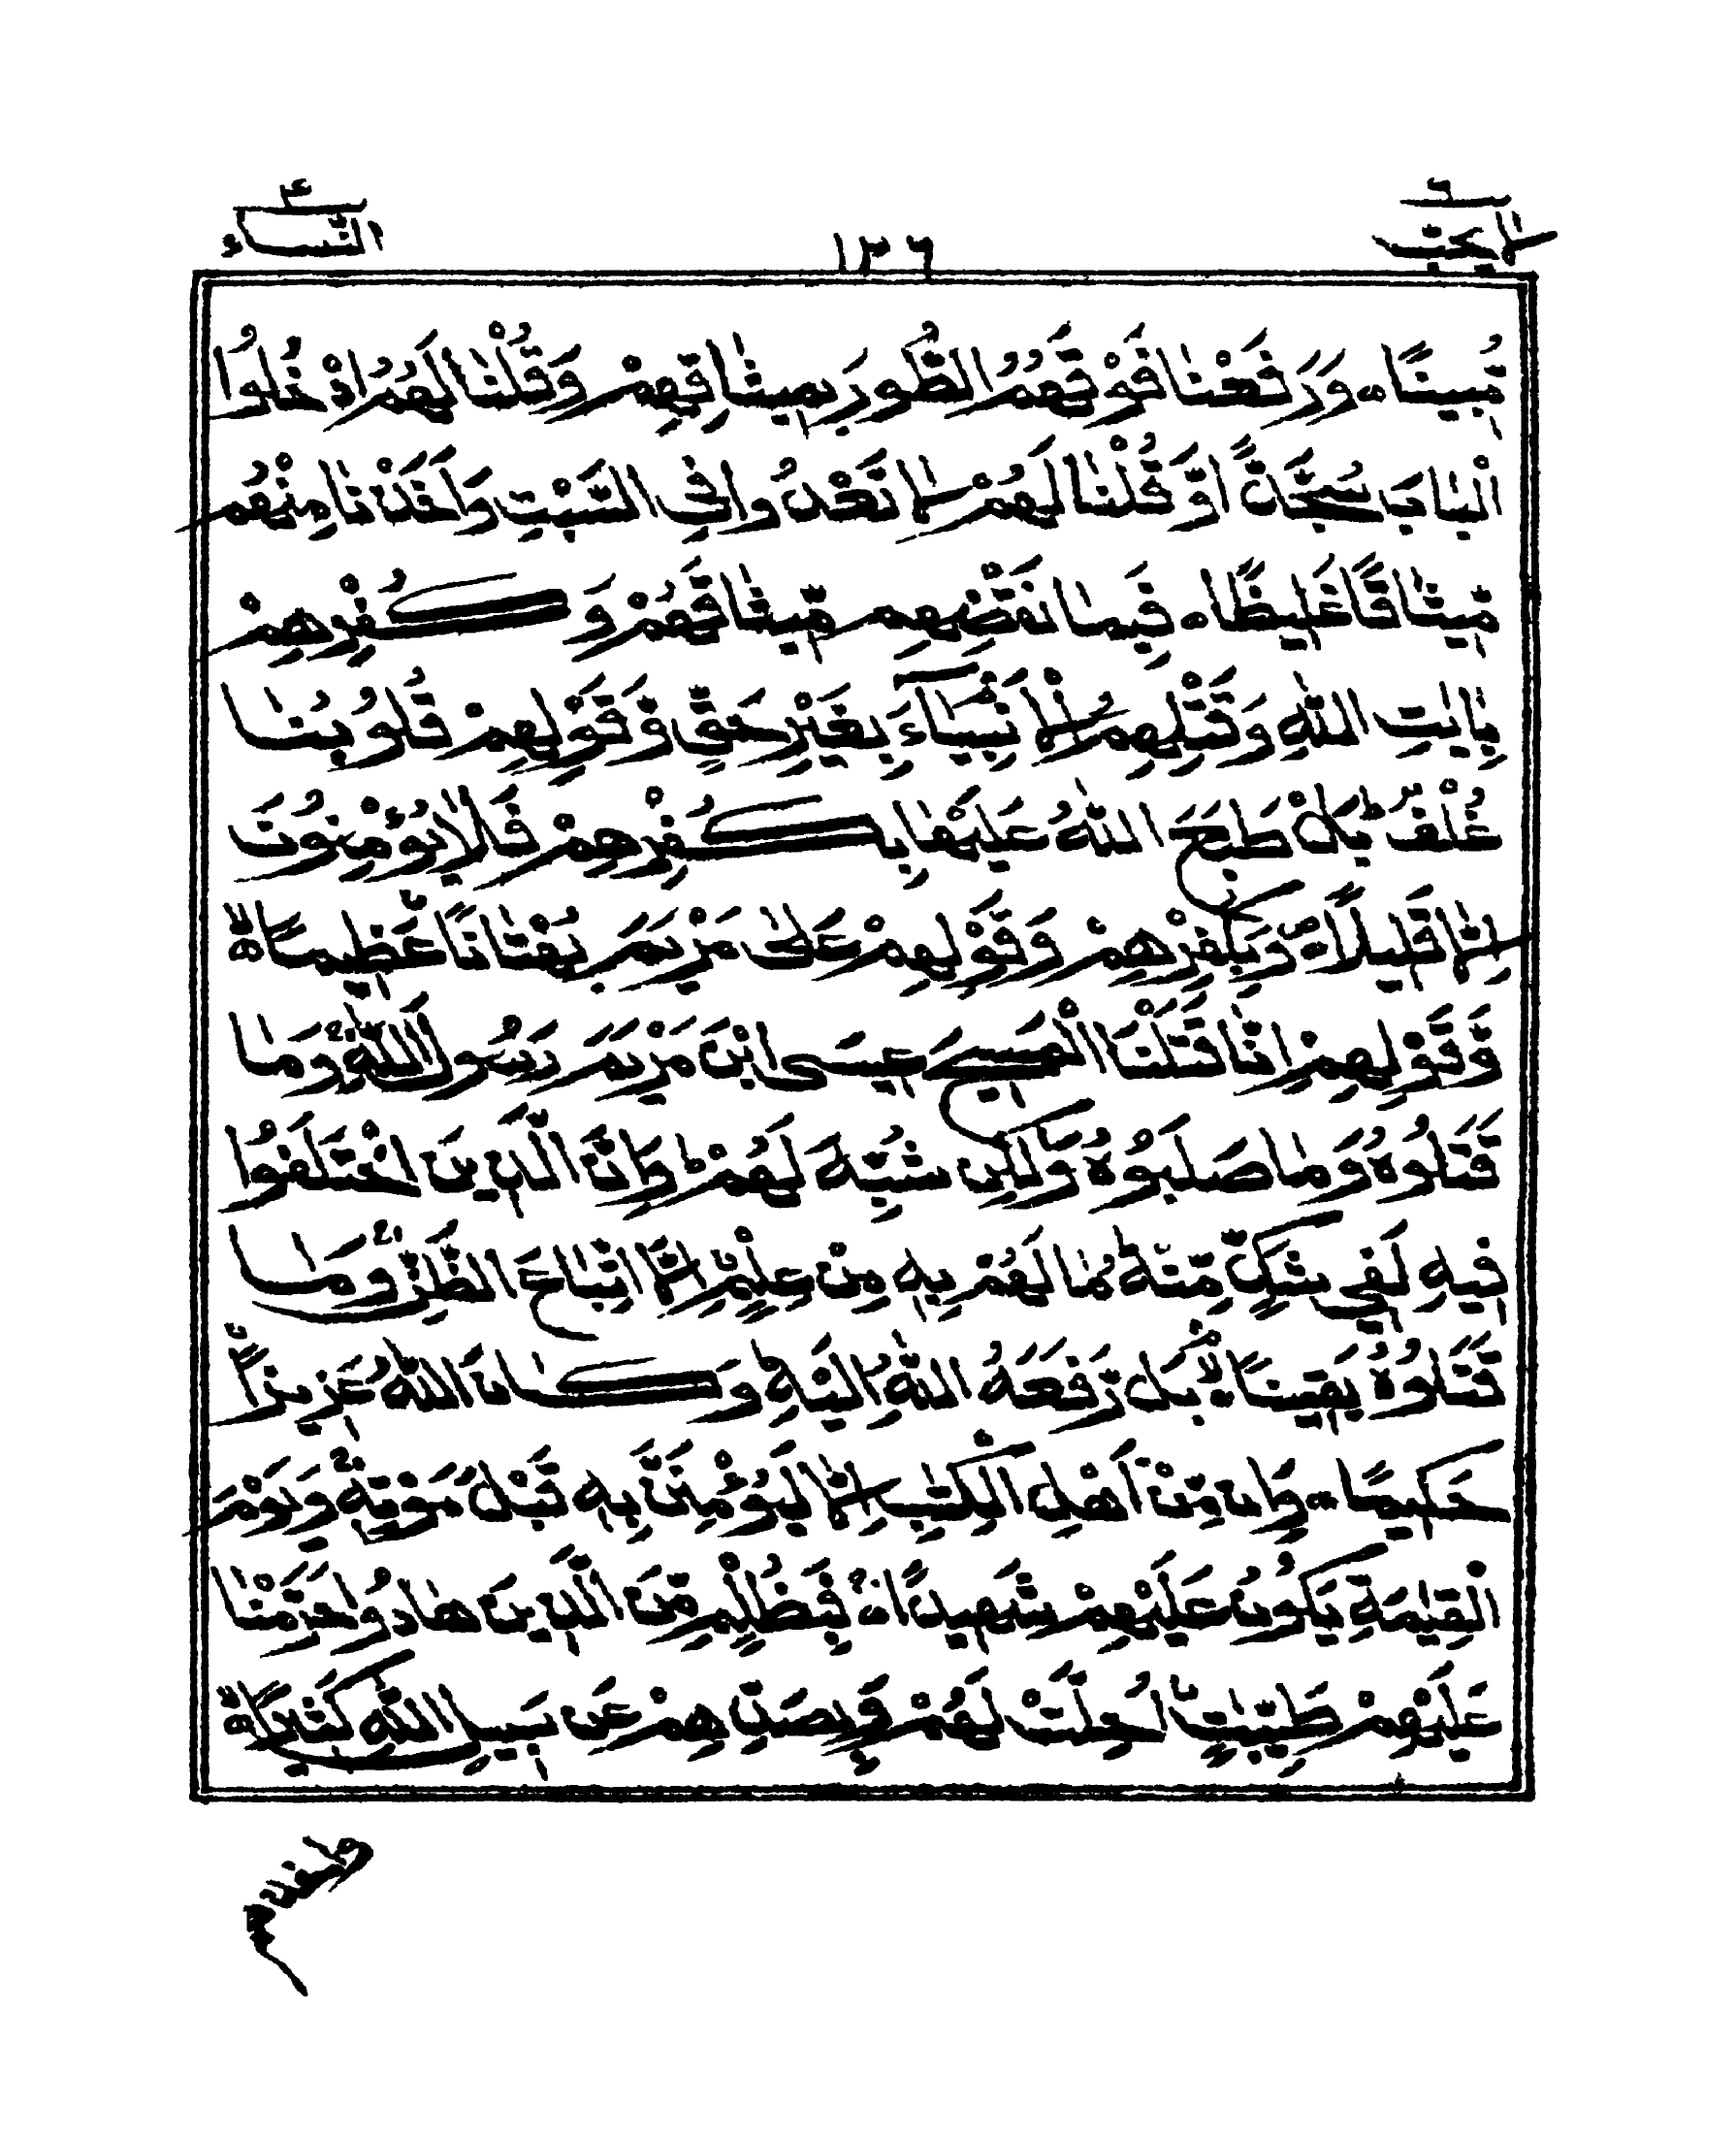 لا يحب ٦
١٣٦
النساء ٤
مُّبِينًا ۝ وَرَفَعْنَا فَوْقَهُمُ الطُّورَ بِمِيثَاقِهِمْ وَقُلْنَا لَهُمُ ادْخُلُوا
الْبَابَ سُجَّدًا وَّقُلْنَا لَهُمْ لَا تَعْدُوا فِي السَّبْتِ وَاَخَذْنَا مِنْهُم
مِّيثَاقًا غَلِيظًا ۝ فَبِمَا نَقْضِهِم مِّيثَاقَهُمْ وَكُفْرِهِمْ
بِاٰيٰتِ اللّٰهِ وَقَتْلِهِمُ الْاَنْبِيَآءَ بِغَيْرِ حَقٍّ وَّقَوْلِهِمْ قُلُوبُنَا
غُلْفٌ ؕ بَلْ طَبَعَ اللّٰهُ عَلَيْهَا بِكُفْرِهِمْ فَلَا يُؤْمِنُونَ
اِلَّا قَلِيلًا ۝ وَّبِكُفْرِهِمْ وَقَوْلِهِمْ عَلٰى مَرْيَمَ بُهْتَانًا عَظِيمًا ۝
وَّقَوْلِهِمْ اِنَّا قَتَلْنَا الْمَسِيحَ عِيسَى ابْنَ مَرْيَمَ رَسُولَ اللّٰهِ ۚ وَمَا
قَتَلُوهُ وَمَا صَلَبُوهُ وَلٰكِن شُبِّهَ لَهُمْ ؕ وَاِنَّ الَّذِينَ اخْتَلَفُوا
فِيهِ لَفِي شَكٍّ مِّنْهُ ؕ مَا لَهُمْ بِهٖ مِنْ عِلْمٍ اِلَّا اتِّبَاعَ الظَّنِّ ۚ وَمَا
قَتَلُوهُ يَقِينًا ۝ بَل رَّفَعَهُ اللّٰهُ اِلَيْهِ ؕ وَكَانَ اللّٰهُ عَزِيزًا
حَكِيمًا ۝ وَاِن مِّنْ اَهْلِ الْكِتٰبِ اِلَّا لَيُؤْمِنَنَّ بِهٖ قَبْلَ مَوْتِهٖ ۚ وَيَوْمَ
الْقِيٰمَةِ يَكُونُ عَلَيْهِمْ شَهِيدًا ۝ فَبِظُلْمٍ مِّنَ الَّذِينَ هَادُوا حَرَّمْنَا
عَلَيْهِمْ طَيِّبٰتٍ اُحِلَّتْ لَهُمْ وَبِصَدِّهِمْ عَن سَبِيلِ اللّٰهِ كَثِيرًا ۝